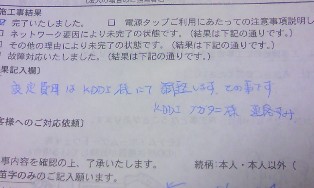 施工事結果
完了いたしました。 □ 電源タップご利用にあたっての注意事項説明し
□ ネットワーク要因により未完了の状態です。(結果は下記の通りです。)
□ その他の理由により未完了の状態です。(結果は下記の通りです。)
□ 故障対応いたしました。(結果は下記の通りです。)
果記入欄】
設定費用は KDDI 様にて
KDDI 様 連絡
客様へのご対応依頼】
事内容を確認の上、了承いたします。 続柄:本人・本人以外(
苗字のみのご記入願います。